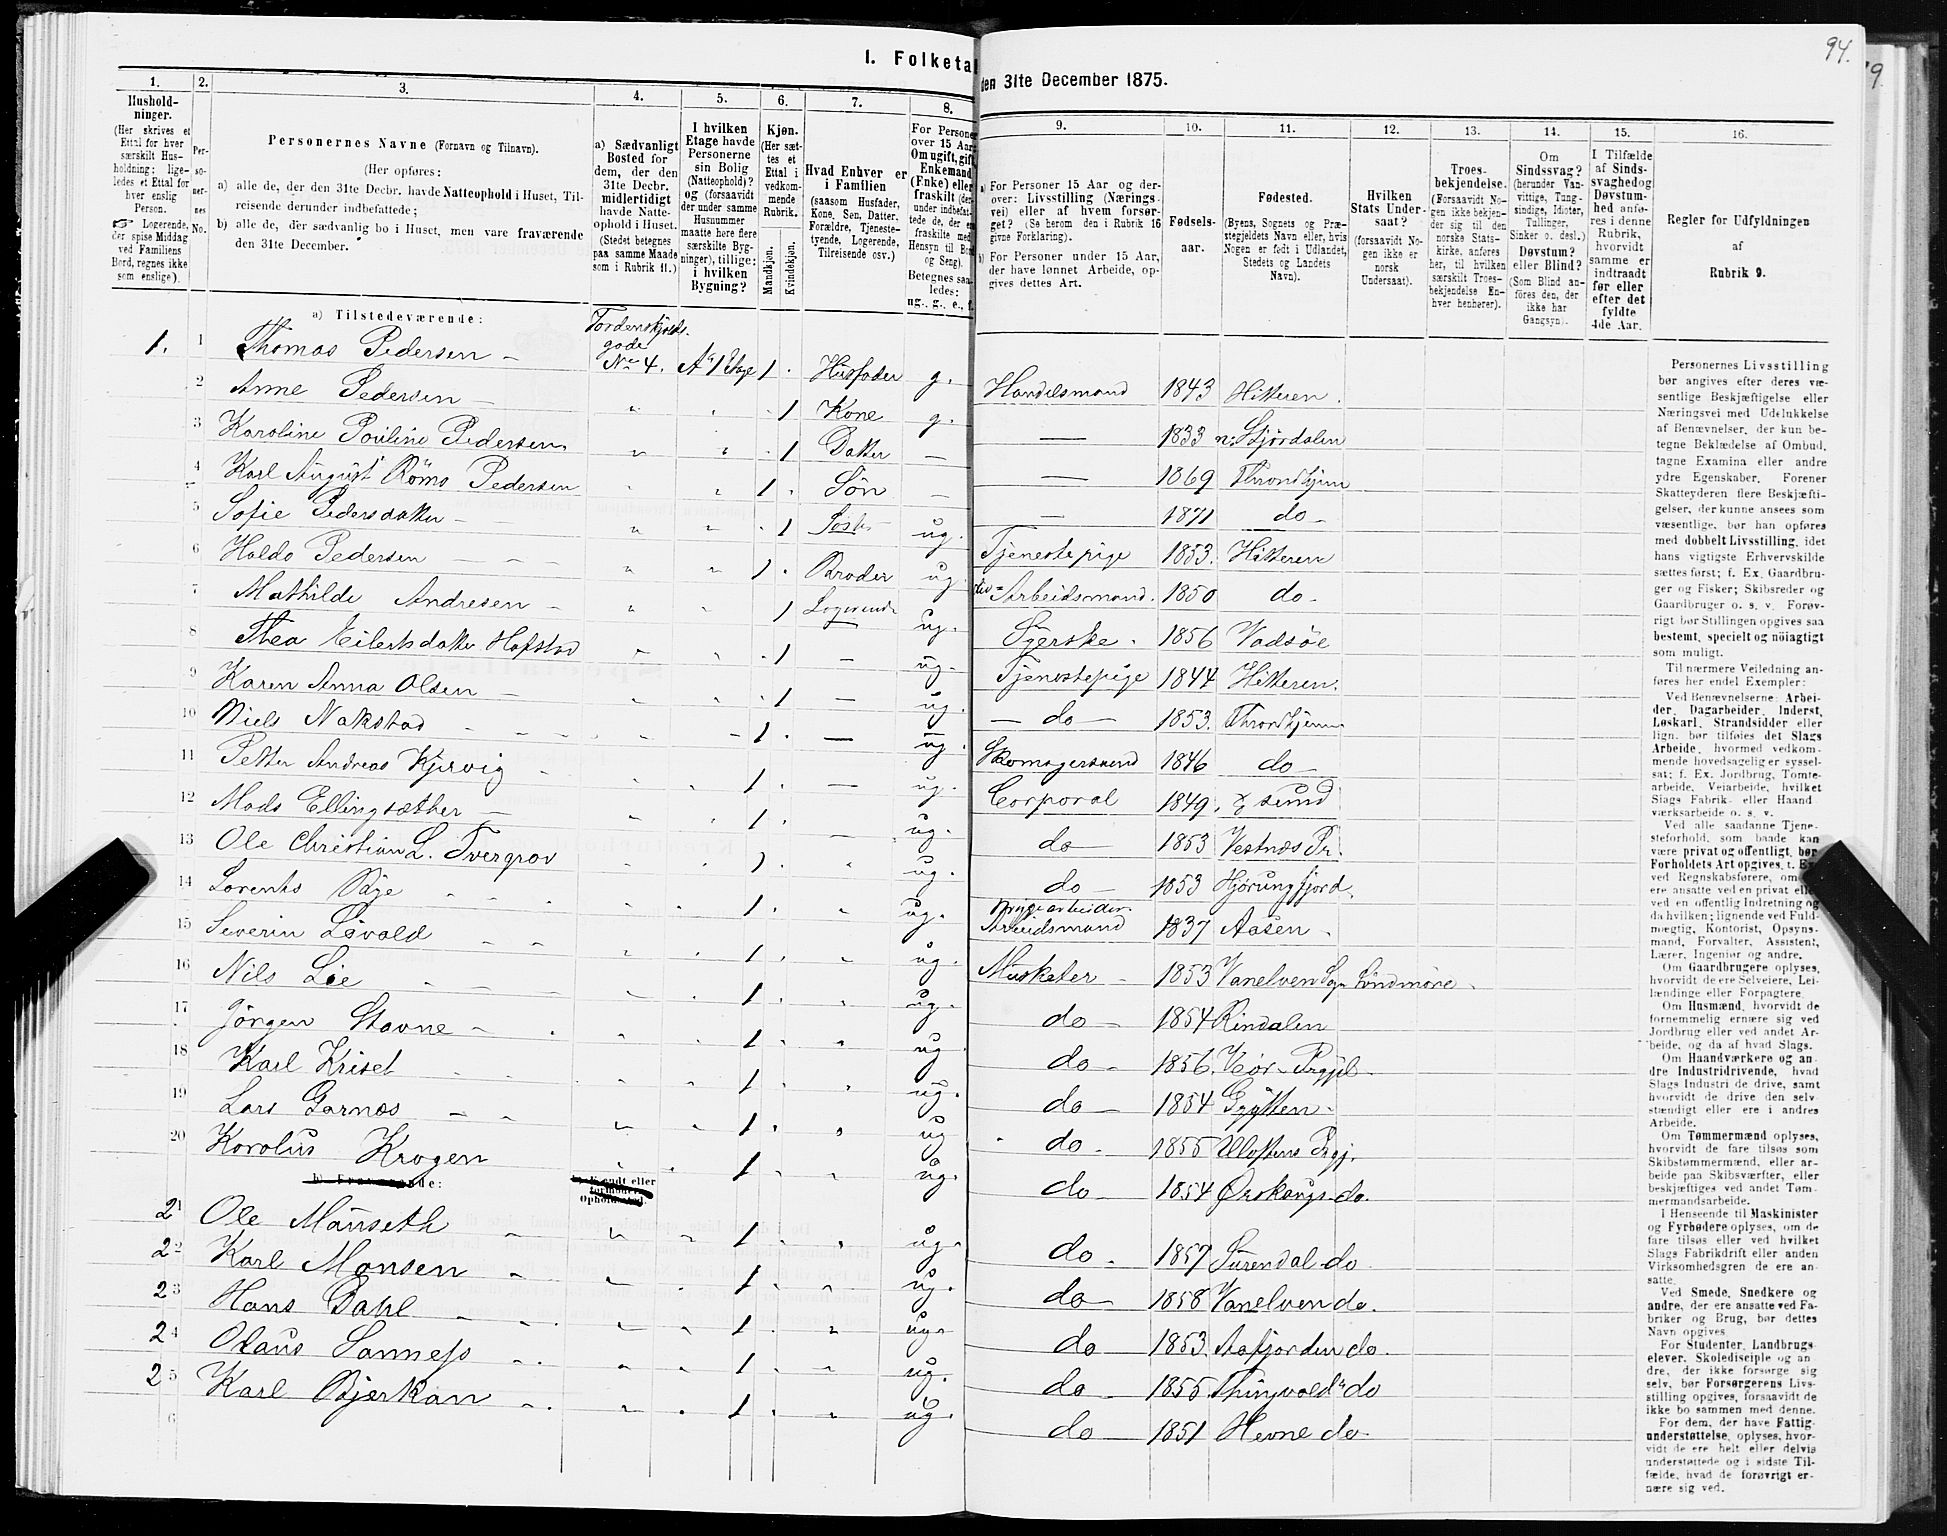 94.
9.
I. Folketal den 31te December 1875.
1.
Hushold-
ninger.
(Her skrives et
Ettal for hver
særskilt Hus-
holdning; lige-
ledes et Ettal for
hver enslig
Person.
Logerende,
der spise Middag
ved Familiens
Bord, regnes ikke
som enslige).
2.
Per-
so-
ner-
nes
No.
3.
Personernes Navne (Fornavn og Tilnavn).
(Her opføres:
a) alle de, der den 31te Decbr. havde Natteophold i Huset, Til-
reisende derunder indbefattede;
b) alle de, der sædvanlig bo i Huset, men vare fraværende
den 31te December.
4.
a) Sædvanligt
Bosted for
dem, der den
31te Decbr.
midlertidigt
havde Natte-
ophold i Huset.
(Stedet betegnes
paa samme Maade
som i Rubrik 11.)
5.
I hvilken
Etage havde
Personerne
sin Bolig
(Natteophold)?
og (forsaavidt
der under samme
Husnummer
maatte høre flere
særskilte Byg-
ninger), tillige:
i hvilken
Bygning?
6.
Kjøn.
(Her sæt-
tes et
Ettal i
vedkom-
mende
Rubrik.
Mandkjøn.
Kvindekjøn.
7.
Hvad Enhver er
i Familien
(saasom Husfader,
Kone, Søn, Datter,
Forældre, Tjeneste-
tyende, Logerende,
Tilreisende osv.)
8.
For Personer
over 15 Aar:
Om ugift, gift,
Enkemand
(Enke) eller
fraskilt (der-
under indbefat-
tede de, der ere
fraskilte med
Hensyn til Bord
og Seng).
Betegnes saa-
ledes:
ug., g., e., f.
9.
a) For Personer 15 Aar og der-
over: Livsstilling (Nærings-
vei) eller af hvem forsør-
get? (Se herom den i Rubrik 16
givne Forklaring).
b) For Personer under 15 Aar,
der have lønnet Arbeide, op-
gives dettes Art.
10.
Fødsels-
aar.
11.
Fødested.
(Byens, Sognets og Præ-
stegjeldets Navn eller, hvis
Nogen er født i Udlandet,
Stedets og Landets
Navn).
12.
Hvilken
Stats Under-
saat?
(forsaavidt No-
gen ikke er
norsk
Undersaat).
13.
Troes-
bekjendelse.
(Forsaavidt No-
gen ikke bekjen-
der sig til den
norske Stats-
kirke, anføres
her, til hvilken
særskilt Troes-
bekjendelse En-
hver henhører).
14.
Om
Sindssvag?
(herunder Van-
vittige, Tung-
sindige, Idioter,
Tullinger,
Sinker o. desl.)
Døvstum?
eller Blind?
(Som Blind an-
føres den, der
ikke har
Gangsyn).
15.
I Tilfælde
af Sinds-
svaghed og
Døvstum-
hed anfø-
res i denne
Rubrik,
hvorvidt
samme er
indtraadt
før eller
efter det
fyldte
4de Aar.
16.
Regler for Udfyldningen
af
Rubrik 9.
a) Tilstedeværende:
Tordenskjolds-
gade
1. 1 Thomas Pedersen - No 4. A 1 Etage 1 . Husfader g. Handelsmand 1843 Hitteren.
2 Anne Pedersen - " . . 1 Kone g. — 1833 n: Stjørdalen
3 Karoline Pouline Pedersen " " . 1 Datter — — 1869 Throndhjem
4 Karl August Röms Pedersen " " 1 . Søn — — 1871 do -
5 Sofie Pedersdatter - " " . 1 Søster ug. Tjenestepige 1853. Hitteren
6 Haldo Pedersen - - - " " 1 . Broder ug Arbeidsmand. 1850 do -
7 Mathilde Andresen - " " 1 Logerende ug. Syerske - 1856 Vadsöe
8 Thea Eilertsdatter Hofstad " " . 1 — ug. Tjenestepige 1844 Hitteren.
9 Karen Anna Olsen - " " . 1 — ug. - do - 1853. Throndhjem
10 Niels Nakstad - - - " - 1 . — ug. Skomagersvend 1846 do -
11 Petter Andreas Kjervig - " 1 . — ug. Corporal 1849. X sund
12 Mads Ellingsæther - " . 1 . — ug. do - 1853 Vestnæs Pr.
13 Ole Christian L. Tvergrov " . 1 . " ug. do - 1853 Hjørungfjord.
Bryggearbeider
14 Lorents Bye - - - " . 1 . " ug. Arbeidsmand 1837 Aasen -
15 Severin Løvold - - " . 1 . " ug. Musketer - 1853 Vanelven Sogn Söndmöre -
16 Nils Lie - - - " " 1 . " ug. do - 1854 Rindalen
17 Jörgen Stavne - . " . 1 . " ug do - 1856. Vær - Prgjel -
18 Karl Kriset - - " " 1 . " ug. do - 1854 Grytten -
19 Lars Garnæs - - " " 1 . " ug do - 1855 Ulvstens Prgj.
20 Karolus Krogen . . 1 . " ug. do - 1854 Ørskougs - do.
b) Fraværende:
b) Kjendt eller
formodet
Opholdssted.
21 Ole Mauseth - " " 1 . " ug. do - 1857 Surendal - do
22 Karl Monsen - " . 1 . " ug. do - 1858 Vanelven do.
23 Hans Dahl - - . " " 1 . " ug. do - 1853. Aafjorden do.
24 Olaus Sanness - . " " 1 . " ug. do - 1855 Thingvold do
25 Karl Bjerkan - . " . 1 . " ug. do - 1851 Hevne do
6
Personernes Livsstilling
bør angives efter deres væ-
sentlige Beskjæftigelse eller
Næringsvei med Udelukkelse
af Benævnelser, der kun be-
tegne Beklædelse af Ombud,
tagne Examina eller andre
ydre Egenskaber. Forener
Skatteyderen flere Beskjæfti-
gelser, der kunne ansees som
væsentlige, bør han opføres
med dobbelt Livsstilling, idet
hans vigtigste Erhvervskilde
sættes først; f. Ex. Gaardbru-
ger og Fisker; Skibsreder og
Gaardbruger o. s. v. Forøv-
rigt bør Stillingen opgives saa
bestemt, specielt og nöiagtigt
som muligt.
Til nærmere Veiledning an-
føres her endel Exempler:
Ved Benævnelserne: Arbei-
der, Dagarbeider, Inderst,
Løskarl, Strandsidder eller
lign. bør tilføies det Slags
Arbeide, hvormed vedkom-
mende hovedsagelig er syssel-
sat; f. Ex. Jordbrug, Tomte-
arbeide, Veiarbeide, hvilket
Slags Fabrik- eller Haand
værksarbeide o. s. v.
Ved alle saadanne Tjene-
steforhold, som baade kan
være privat og offentligt, bør
Forholdets Art opgives, f. Ex.
ved Regnskabsførere, om de
ere ansatte ved en privat eller
ved en offentlig Indretning og
da hvilken; lignende ved Fuld-
mægtig, Kontorist, Opsyns-
mand, Forvalter, Assistent,
Lærer, Ingeniør og andre.
Om Gaardbrugere oplyses,
hvorvidt de ere Selveiere, Lei-
lændinge eller Forpagtere.
Om Husmænd, hvorvidt de
fornemmelig ernære sig ved
Jordbrug eller ved andet Ar-
beide, og da af hvad Slags.
Om Haandværkere og an-
dre Industridrivende, hvad
Slags Industri de drive, samt
hvorvidt de drive den selv-
stændigt eller ere i andres
Arbeide.
Om Tømmermænd oplyses,
hvorvidt de fare tilsøs som
Skibstømmermænd, eller ar-
beide paa Skibsværfter, eller
beskjæftiges ved andet Tøm-
mermandsarbeide.
I Henseende til Maskinister
og Fyrbødere oplyses, om de
fare tilsøs eller ved hvilket
Slags Fabrikdrift eller anden
Virksomhedsgren de ere an-
satte.
Ved Smede, Snedkere og
andre, der ere ansatte ved Fa-
briker og Brug, bør dettes
Navn opgives
For Studenter, Landbrugs-
elever, Skoledisciple og an
dre, der ikke forsørge sig
selv, bør Forsørgerens Livs-
stilling opgives, forsaavidt de
ikke bo sammen med denne.
For dem, der have Fattig-
understøttelse, oplyses, hvor-
vidt de ere helt eller delvis
understøttede og i sidste Til-
fælde, hvad de forøvrigt er-
nære sig ved.